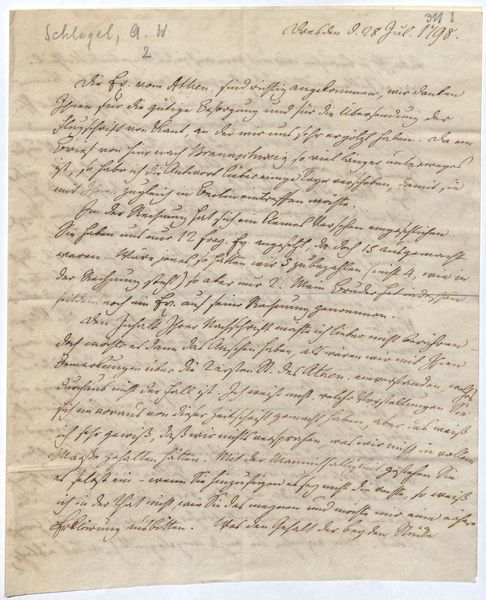 Schlegel, A. W.
2
Dresden d. 28 Jul. 1798.
Die Ex. vom Athen. sind richtig angekommen, wir danken
Ihnen für die gütige Besorgung und für die Übersendung der
Flugschrift von Kant, an der wir uns sehr ergötzt haben. Da ein
Brief von hier nach Braunschweig so viel länger unterweges
ist, so habe ich die Antwort lieber einige Tage verschoben, damit sie
mit Ihnen zugleich in Berlin eintreffen möchte.
In der Rechnung hat sich ein kleines Versehen eingeschlichen
Sie haben uns nur 12 frey Ex. angesetzt, da doch 15 ausgemacht
waren. Wäre jenes so hätten wir 5 zu bezahlen (nicht 4, wie in
der Rechnung steht) so aber nur 2. Mein Bruder hat indessen
seitdem noch ein Ex. auf seine Rechnung genommen.
Den Inhalt Ihrer Nachschrift möchte ich lieber nicht berühren
doch möchte es dann das Ansehen haben, als wären wir mit Ihren
Bemerkungen über die 2 ersten St. des Athen. einverstanden, welches
durchaus nicht der Fall ist. Ich weiß nicht, welche Vorstellungen Sie
sich im voraus von dieser Zeitschrift gemacht haben, aber das weiß
ich sehr gewiß, daß wir nichts versprachen, was wir nicht in vollem
Maaße gehalten hätten. Mit der Mannichfaltigkeit gestehen Sie
es selbst ein - wenn Sie hinzufügen es sey nicht die rechte, so weiß
ich in der That nicht, wie Sie das meynen und möchte mir eine nähere
Erklärung ausbitten. Was den Gehalt der beyden Stücke